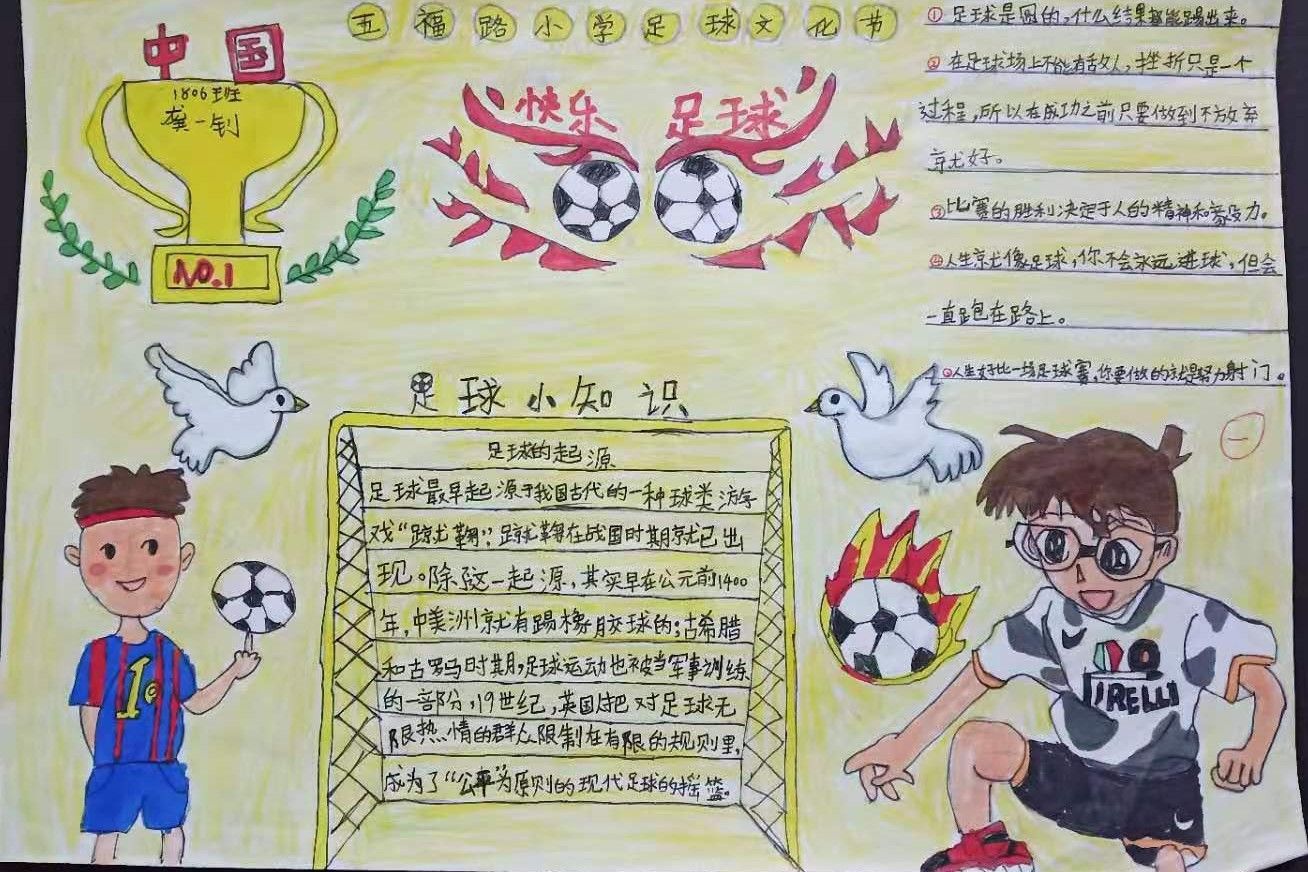 五福路小学足球文化节
中国
1806班
龚一钊
NO.1
快乐 足球
①足球是圆的,什么结果都能踢出来。
②在足球场上不能有敌人,挫折只是一个
过程,所以在成功之前只要做到不放弃
就好。
③比赛的胜利决定于人的精神和意设力。
④人生就像足球,你不会永远进球,但会
一直跑在路上。
人生好比一场足球赛,你要做的就是努力射门。
一
足球小知识
足球的起源
足球最早起源于我国古代的一种球类游
戏“蹴鞠”;蹴鞠在战国时期就已出
现。除这一起源,其实早在公元前1400
年,中美洲就有踢橡胶球的;古希腊
和古罗马时期,足球运动也被当军事训练
的一部分,19世纪,英国人把对足球无
限热情的群众限制在有限的规则里,
成为了“公平”为原则的现代足球的摇篮。
10
IRELLI